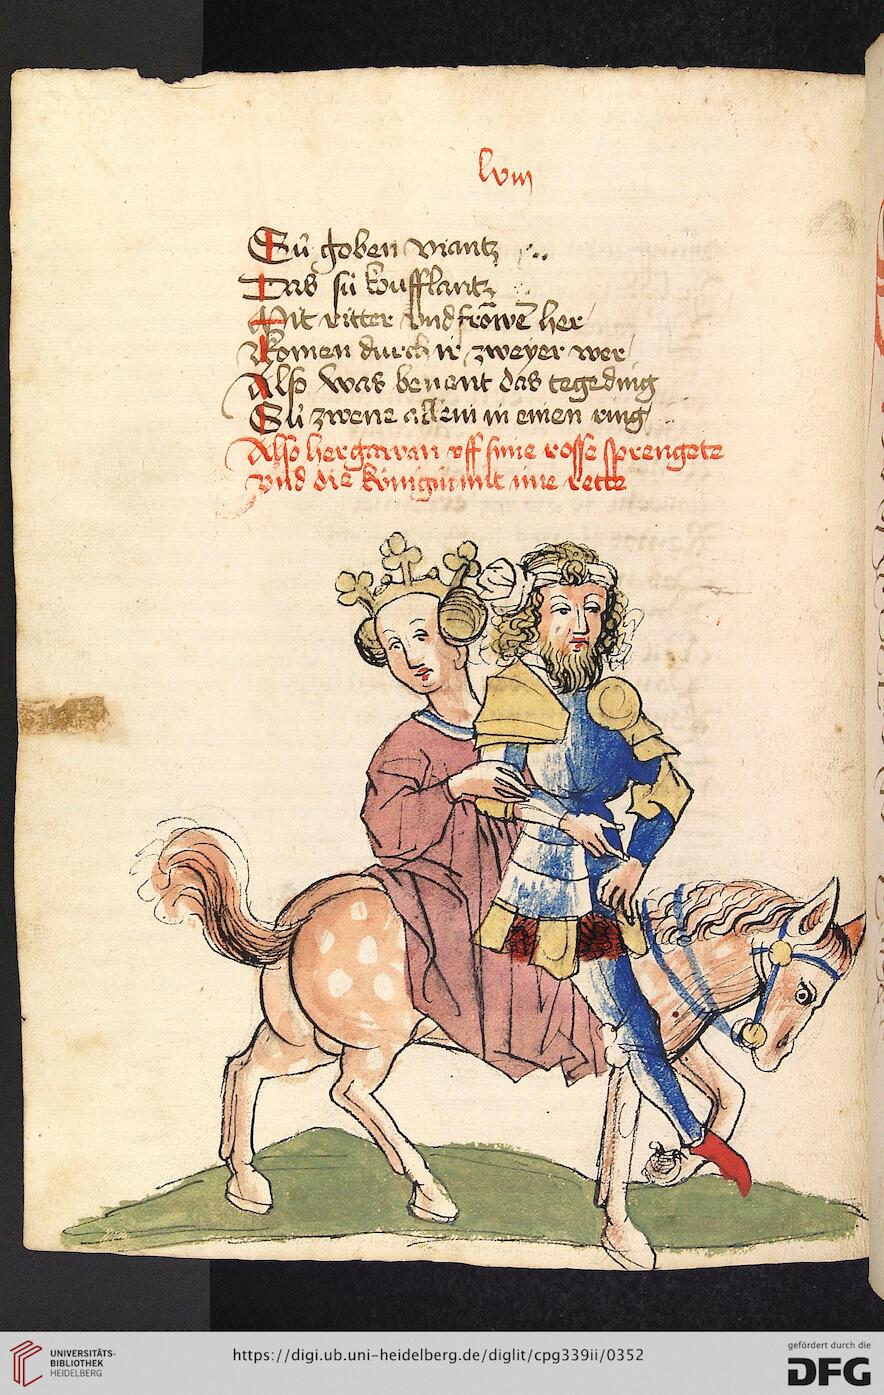 lviij
Sú goben viantz
Das sú koufflantz
Mit ritter vnd frowē her
Komen durch ir zweyer wer
Also was benant das tegeding
Sü zwene allein in einen ring
Also her gawan vff sime rosse sprengete
vnd die künigin mit ime rette
UNIVERSITÄTS-
BIBLIOTHEK
HEIDELBERG
https://digi.ub.uni-heidelberg.de/diglit/cpg339ii/0352
gefördert durch die
DFG